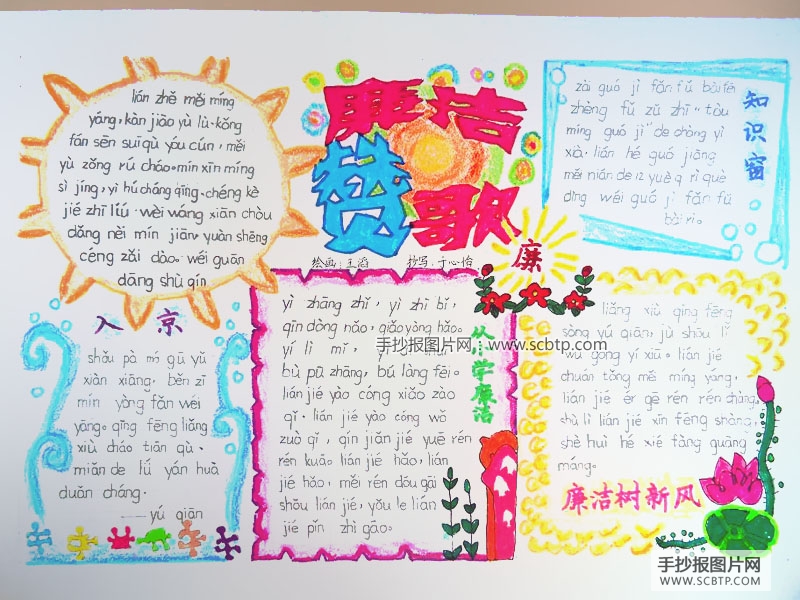 廉洁
赞歌
绘画:王滔 抄写:于心怡
lián zhě měi míng
yáng, kàn jiāo yù lù. kǒng
fán sēn suì qù yóu cún, měi
yù zǒng rú cháo. mín xīn míng
sì jíng, yì hú cháng qīng. chéng kè
jié zhī liú. wèi wàng xiān chòu
dǎng nèi mín jiān, yuàn shēng
céng zǎi dào. wéi guān
dāng shù qín
知识窗
zài guó jì fǎn fǔ bài fēi
zhèng fǔ zǔ zhī "tòu
míng guó jì" de chōng yì
xià, lián hé guó jiāng
měi nián de 12 yuè 9 rì què
dìng wéi guó jì fǎn fǔ
bài rì.
入京
shǒu pà mó gū yǔ
xiàn xiāng, běn zī
mín yòng fǎn wéi
yāng. qīng fēng liǎng
xiù cháo tiān qù.
miǎn de lǘ yán huà
duǎn cháng.
——yú qiān
从小学廉洁
yì zhāng zhǐ, yì zhī bǐ,
qín dòng nǎo, qiǎo yòng hǎo.
yí lì mǐ,
bù pū zhāng, bú làng fèi.
lián jié yào cóng xiǎo zào
qǐ. lián jié yào cóng wǒ
zuò qǐ. qín jiǎn jié yuē rén
rén kuā. lián jié hǎo, lián
jié hǎo, měi rén dōu gāi
shǒu lián jié, yǒu le lián
jié pǐn zhì gāo.
廉
liǎng xiù qīng fēng
sòng yú qiān, jù shōu lǐ
wù gōng yí xiū. lián jié
chuán tǒng měi míng yáng,
lián jié ér gē rén rén chàng.
shù lì lián jié xīn fēng shàng,
shè huì hé xié fàng guāng
máng.
廉洁树新风
手抄报图片网:www.scbtp.com
手抄报图片网
WWW.SCBTP.COM